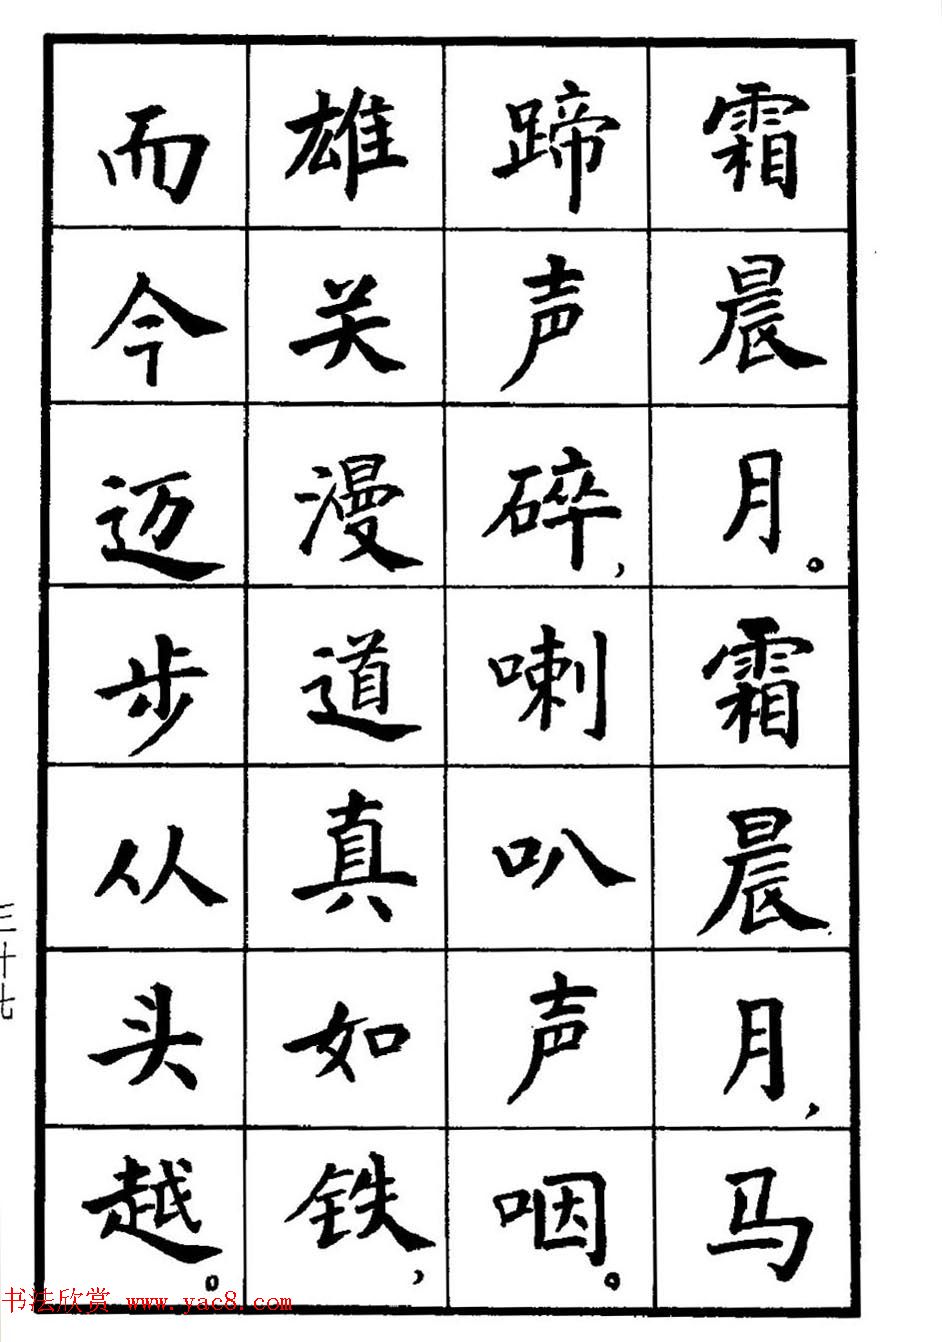 霜晨月。霜晨月，马
蹄声碎，喇叭声咽。
雄关漫道真如铁，
而今迈步从头越。
三十七
书法欣赏 www.yac8.com